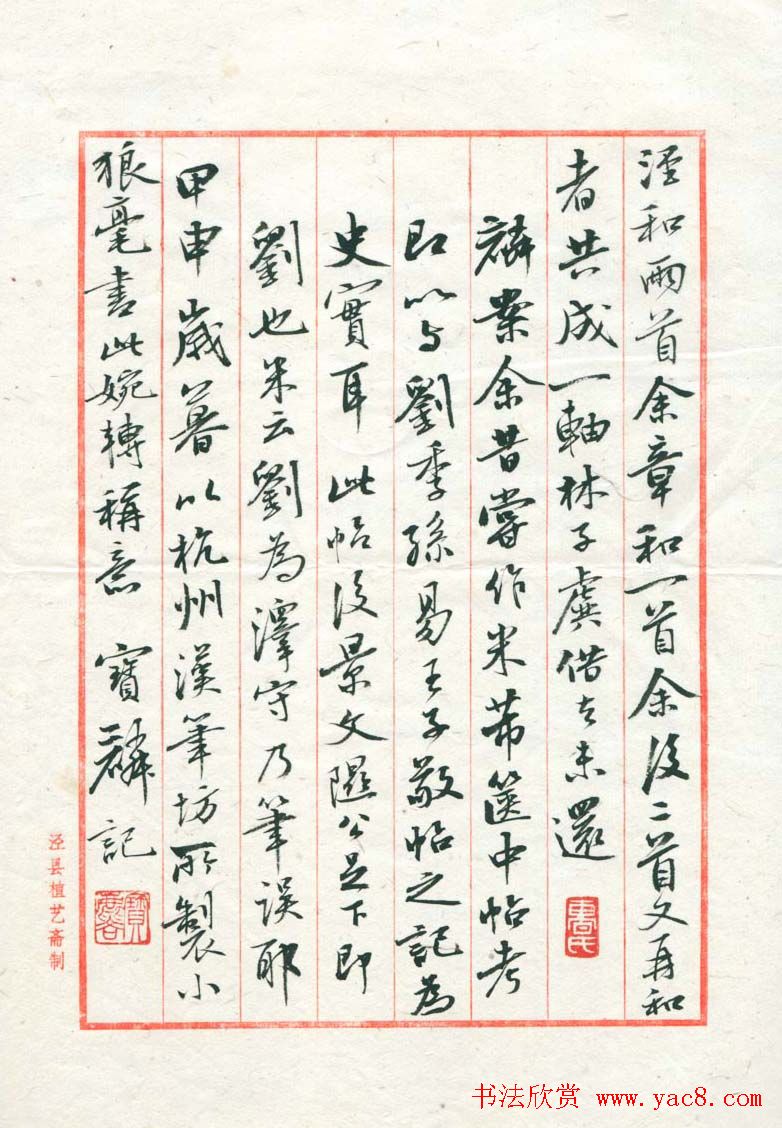 涇和兩首余章和一首余後二首又再和
者共成一軸林子虞借去未還
麟案余昔嘗作米芾篋中帖考
即以与劉季孫易王子敬帖之記為
史實耳此帖後景文隰公足下即
劉也米云劉為澤守乃筆误耶
甲申歲暮以杭州漢筆坊所製小
狼毫書此婉轉稱意 寶麟記
泾县植艺斋制
书法欣赏 www.yac8.com